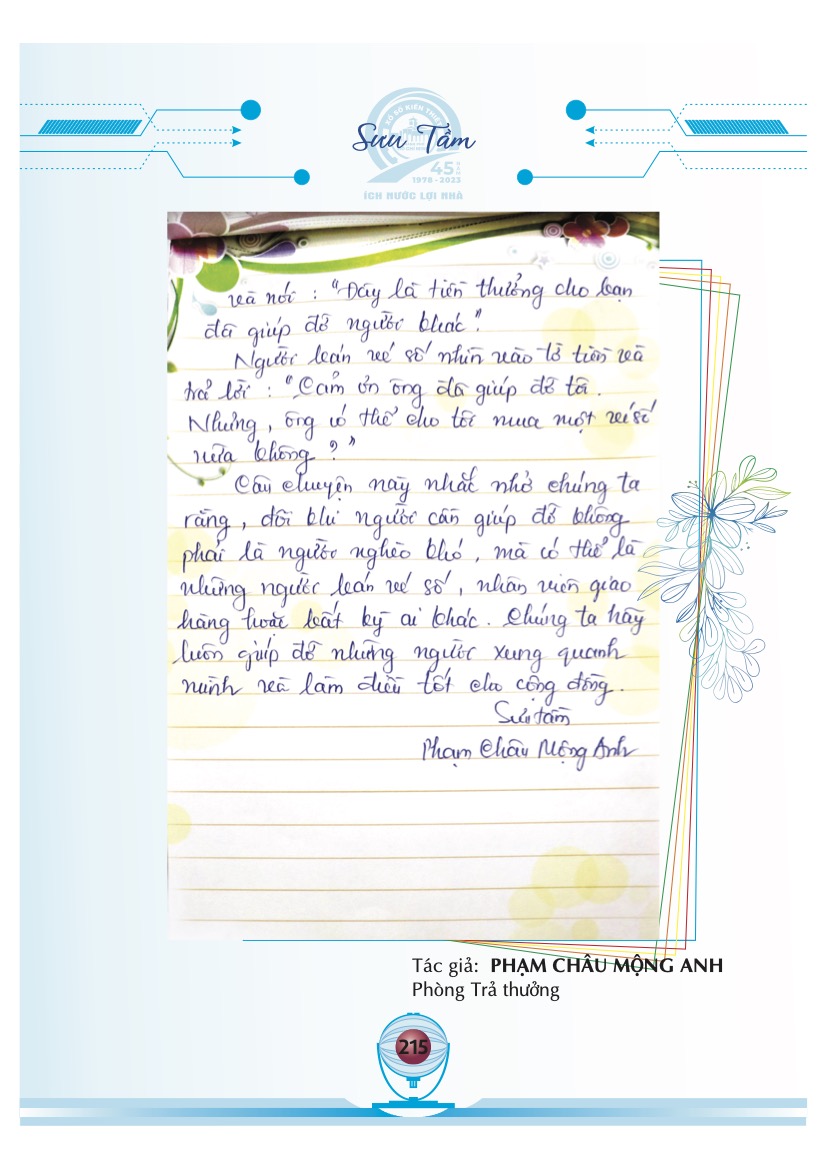 XỔ SỐ KIẾN THIẾT
Sưu Tầm
45 NĂM
1978 - 2023
ÍCH NƯỚC LỢI NHÀ
và nói : "Đây là tiền thưởng cho bạn
đã giúp đỡ người khác".
Người bán vé số nhìn vào tờ tiền và
trả lời : "Cảm ơn ông đã giúp đỡ tôi.
Nhưng, ông có thể cho tôi mua một vé số
nữa không ?"
Câu chuyện này nhắc nhở chúng ta
rằng, đôi khi người cần giúp đỡ không
phải là người nghèo khó, mà có thể là
những người bán vé số, nhân viên giao
hàng hoặc bất kỳ ai khác. Chúng ta hãy
luôn giúp đỡ những người xung quanh
mình và làm điều tốt cho cộng đồng.
Sưu tầm
Phạm Châu Mộng Anh
Tác giả: PHẠM CHÂU MỘNG ANH
Phòng Trả thưởng
215